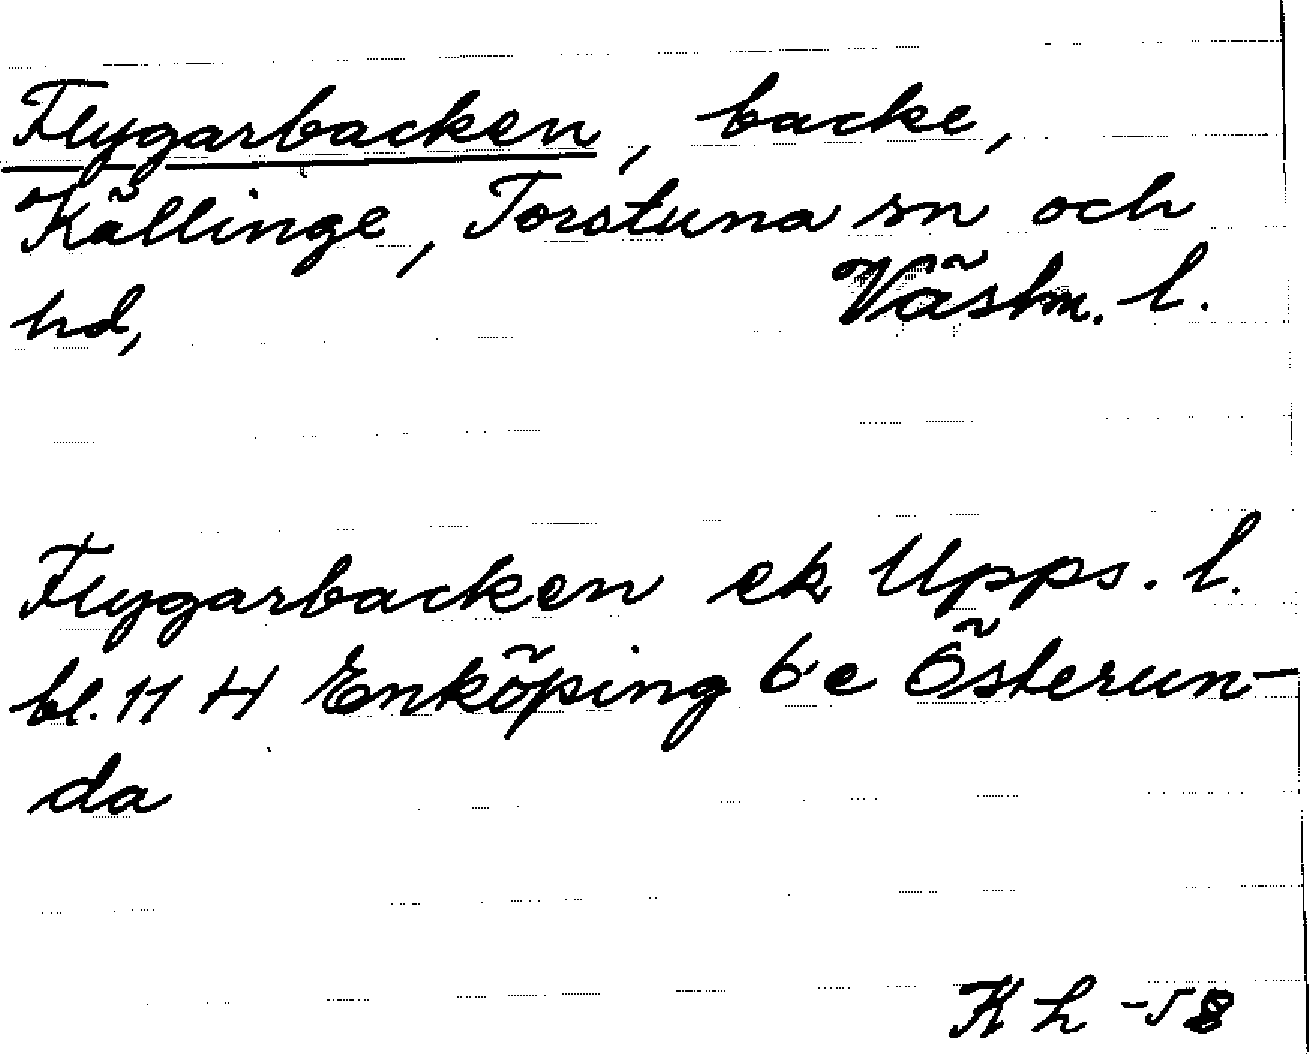 Flygarbacken, backe,
Källinge, Torstuna sn och
hd, Västm. l.
Flygarbacken ek Upps. l.
bl. 11 H Enköping 6 e Österun-
da
K L -58